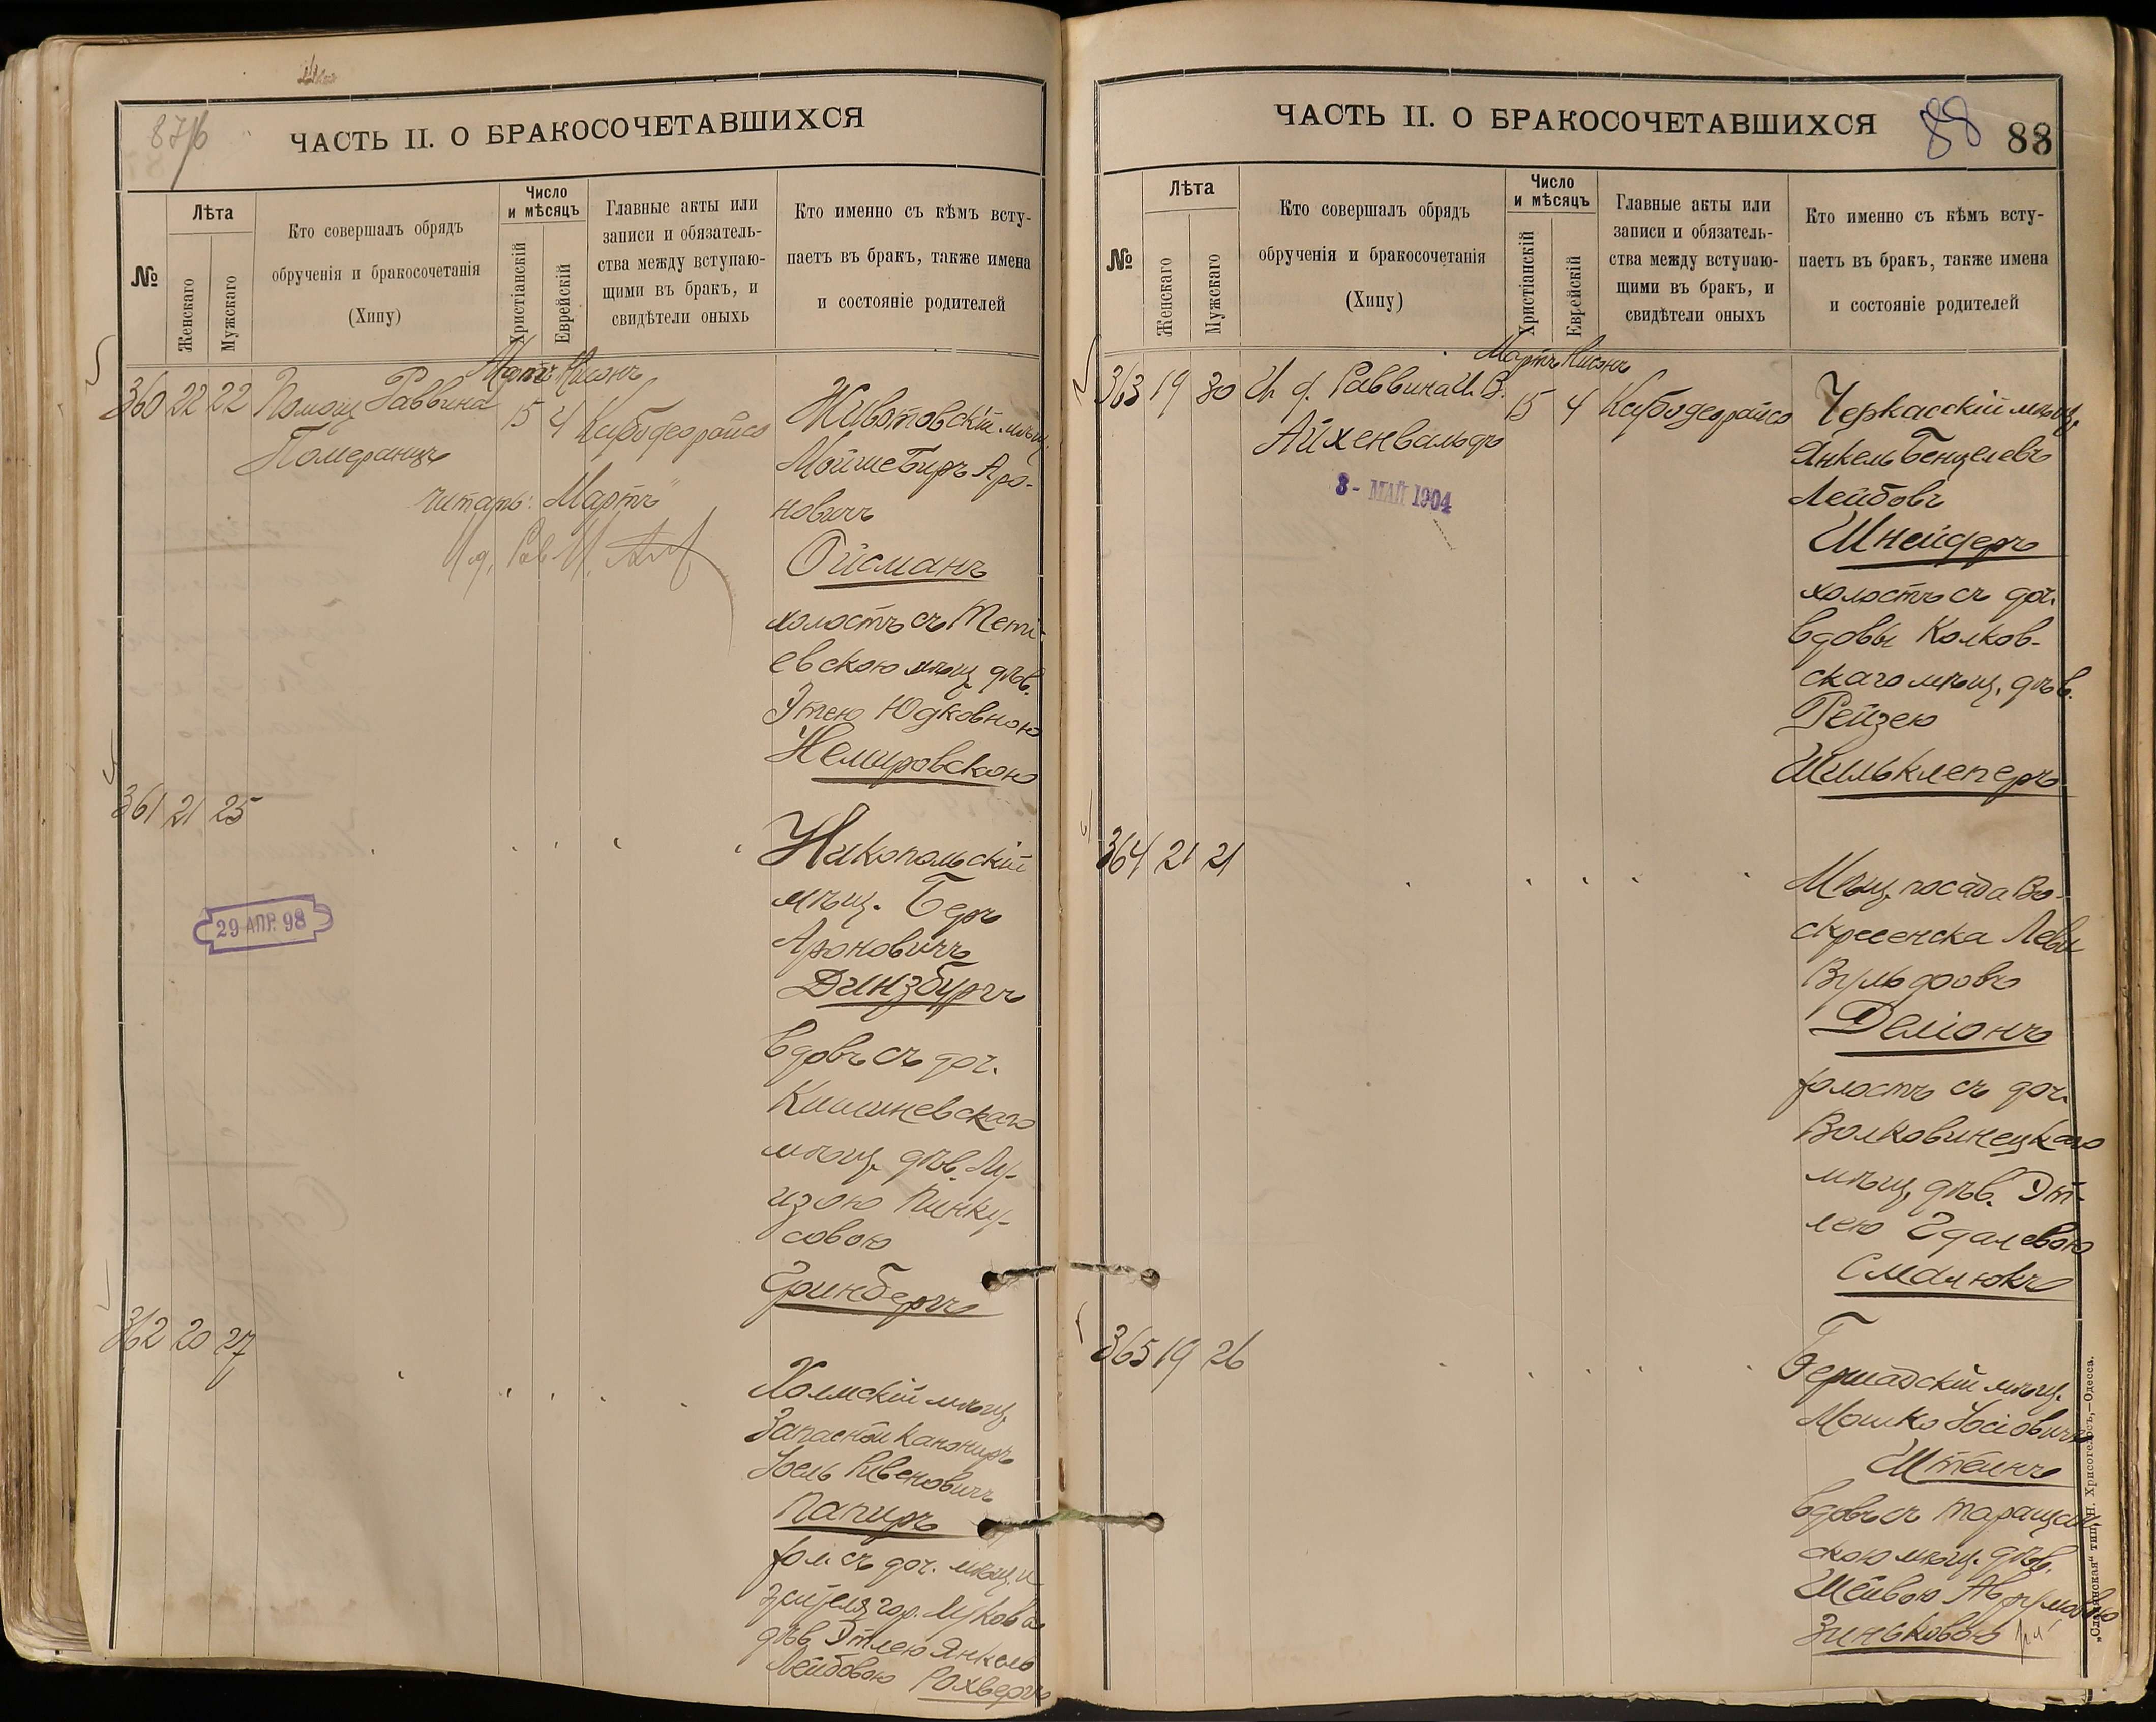 87/б
ЧАСТЬ II. О БРАКОСОЧЕТАВШИХСЯ
№
Лѣта
Женскаго
Мужскаго
Кто совершалъ обрядъ
обрученія и бракосочетанія
(Хипу)
Число
и мѣсяцъ
Христіанскій
Еврейскій
Главные акты или
записи и обязатель-
ства между вступаю-
щими въ бракъ, и
свидѣтели оныхъ
Кто именно съ кѣмъ всту-
паетъ въ бракъ, также имена
и состояніе родителей
Мартъ Нисонъ
360 22 22 Помощ Раввина 15 4
Померанцъ
читать: Мартъ"
И. д. Рав
Животовскій мѣщ.
Мойше Беръ Аро-
новичъ
Ойсманъ
холостъ съ Тети-
евскою мѣщ. дѣв.
Этею Юдковною
Немировскою
361 21 25
29 АПР. 98
Никопольскій
мѣщ. Беръ
Ароновичъ
Динзбургъ
вдовъ съ доч.
Кишиневскаго
мѣщ. дѣв. Лу-
изою Пинку-
совою
Гринбергъ
362 20 27
Холмскій мѣщ.
Запасной Канониръ
Іоель Рувеновичъ
Папиръ
хол. съ доч. мѣщ. и
жителя гор. Лукова
дѣв. Этлею Янкель
Лейбовою Рохвергъ
ЧАСТЬ II. О БРАКОСОЧЕТАВШИХСЯ
88 88
№
Лѣта
Женскаго
Мужскаго
Кто совершалъ обрядъ
обрученія и бракосочетанія
(Хипу)
Число
и мѣсяцъ
Христіанскій
Еврейскій
Главные акты или
записи и обязатель-
ства между вступаю-
щими въ бракъ, и
свидѣтели оныхъ
Кто именно съ кѣмъ всту-
паетъ въ бракъ, также имена
и состояніе родителей
Мартъ Нисонъ
363 19 30 И. д. Раввина И. В. 15 4
Айхенвальдъ
8- МАЙ 1904
Черкасскій мѣщ.
Янкель Бенцелевъ
Лейбовъ
Шнейдеръ
холостъ съ доч.
вдовы Колков-
скаго мѣщ. дѣв.
Рейзею
Шильклеперъ
364 21 21
Мѣщ. посада Во-
скресенска Леви
Вульфовъ
Деліонъ
холостъ съ доч.
Волковинецкаго
мѣщ. дѣв. Эт-
лею Гдалевою
Смалюкъ
365 19 26
Бершадскій мѣщ.
Мошко Іосіовичъ
Штеинъ
вдовъ съ Таращан-
скою мѣщ. дѣв.
Шейвою Аврумовою
Зиньковою
„Славянская“ тип. Н. Хрисогелосъ,—Одесса.